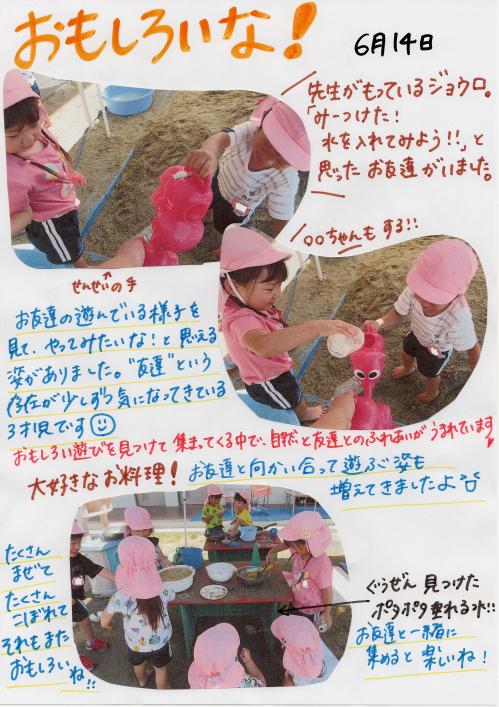 おもしろいな!
6月14日
先生がもっているジョウロ。
「みーつけた!
水を入れてみよう!!」と
思ったお友達がいました。
せんせいの手
○○ちゃんもする!!
お友達の遊んでいる様子を
見て、やってみたいな!と思える
姿がありました。"友達"という
存在が少しずつ気になってきている
3才児です
おもしろい遊びを見つけて集まってくる中で、自然と友達とのふれあいがうまれています
大好きなお料理!
お友達と向かい合って遊ぶ姿も
増えてきましたよ
たくさん
まぜて
たくさん
こぼれて
それもまた
おもしろい
ね!!
ぐうぜん見つけた
ポタポタ垂れる水!!
お友達と一緒に
集めると楽しいね!